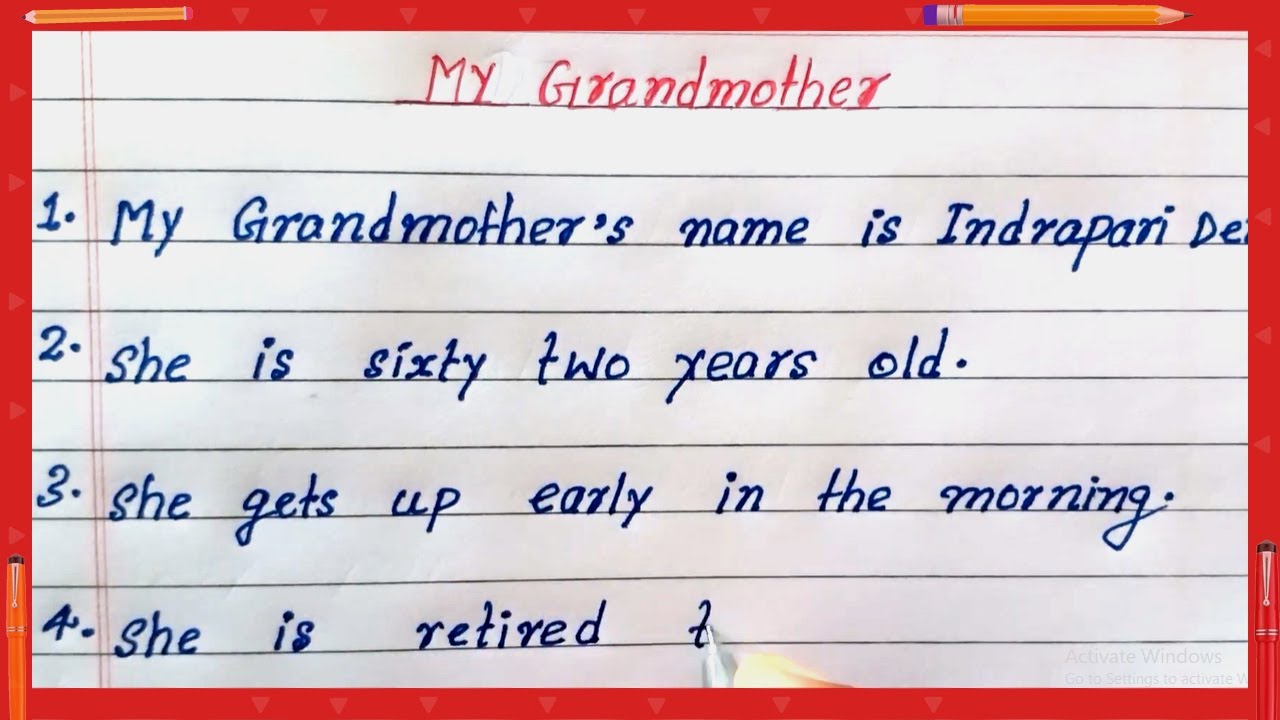 My Grandmother
1. My Grandmother's name is Indrapari De
2. She is sixty two years old.
3. She gets up early in the morning.
4. She is retired t
Activate Windows
Go to Settings to activate W